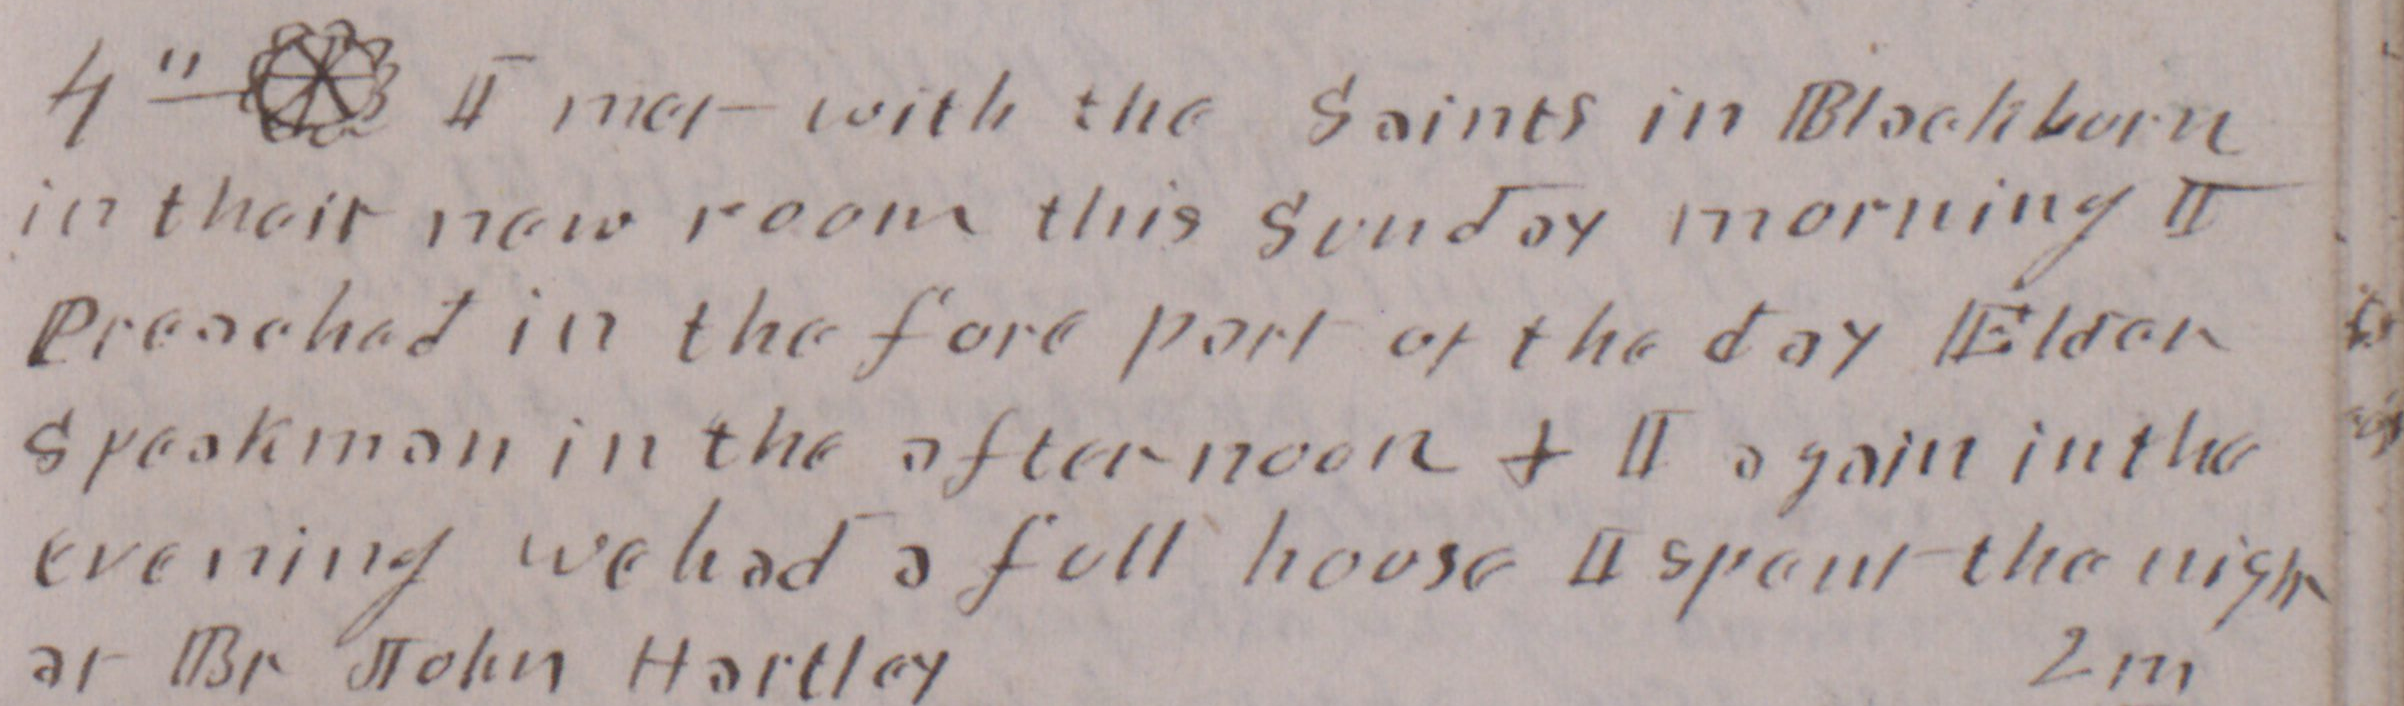 4" I met with the Saints in Blackburn
in their new room this Sunday morning I
Preached in the fore part of the day Elder
Speakman in the afternoon + I again in the
evening we had a full house I spent the night
at Br John Hartley 2 m